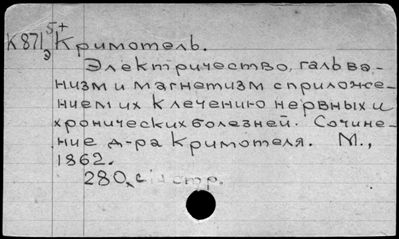 5+
К871э Кримотель.
Электричество, гальва-
низм и магнетизм с приложе-
нием их к лечению нервных и
хронических болезней. Сочине-
ние д-ра Кримотеля. М.,
1862.
280, стр.